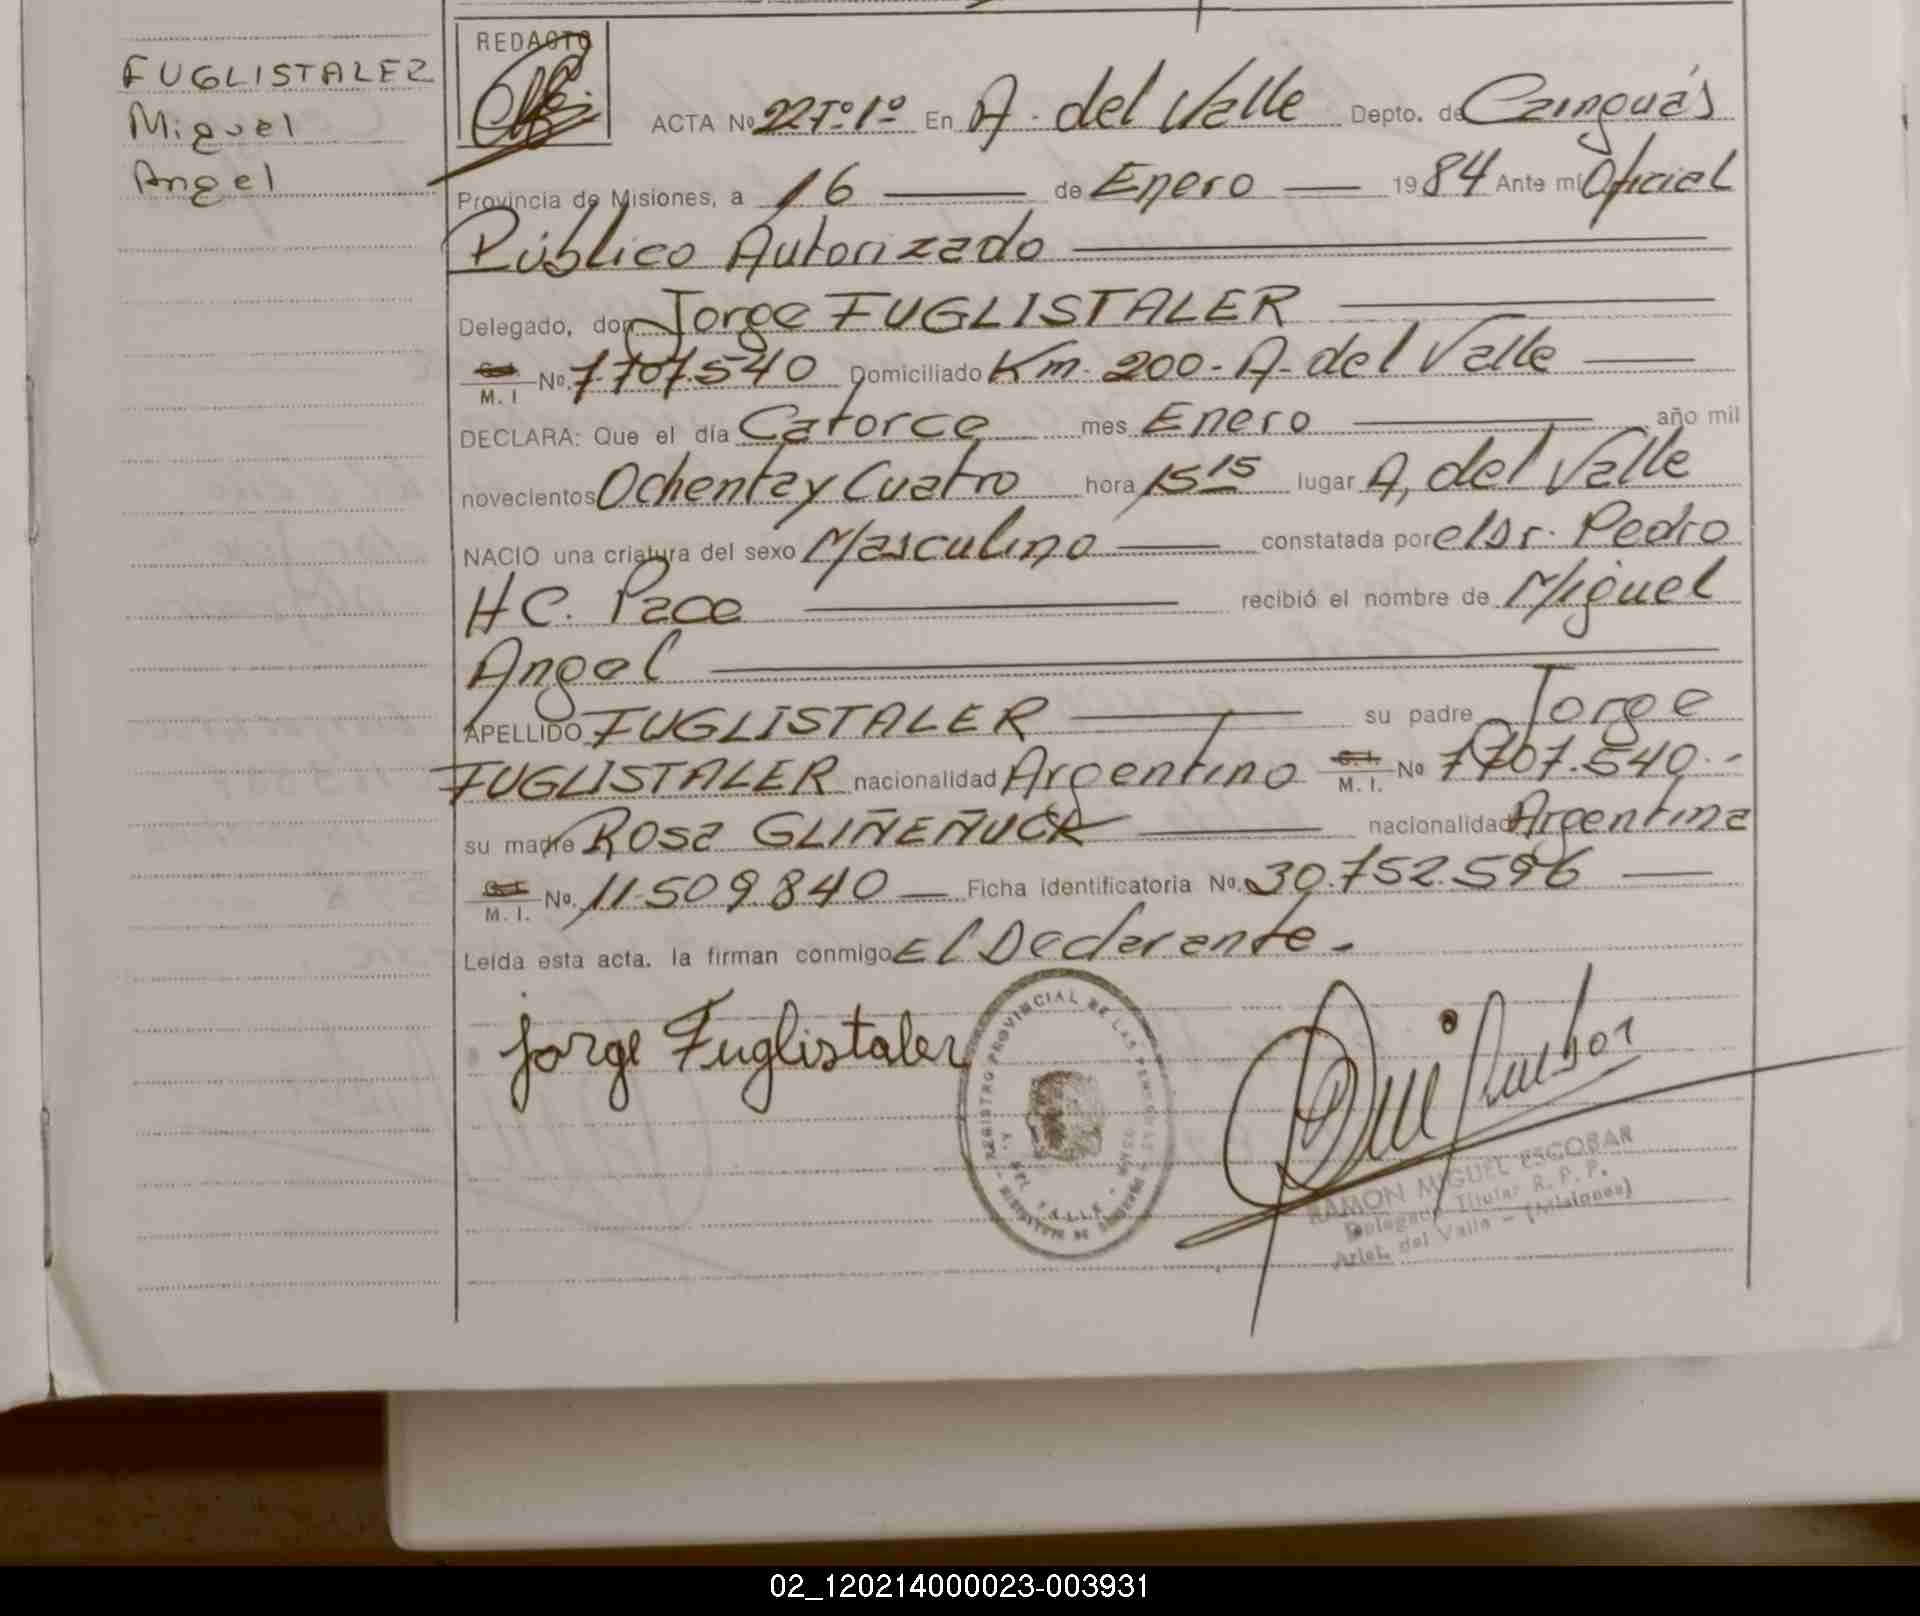 FUGLISTALER
Miguel
Angel
REDACTO
ACTA No 22Tº1º En A. del Valle Depto. de Cainguás
Provincia de Misiones, a 16 de Enero 1984 Ante mí Oficial
Público Autorizado
Delegado, don Jorge FUGLISTALER
C.I. M.I. No. 7.707.540 Domiciliado Km. 200 - A. del Valle
DECLARA: Que el día Catorce mes Enero año mil
novecientos Ochenta y Cuatro hora 15 15 lugar A. del Valle
NACIO una criatura del sexo Masculino constatada por el Dr. Pedro
H C. Pace recibió el nombre de Miguel
Angel
APELLIDO FUGLISTALER su padre Jorge
FUGLISTALER nacionalidad Argentino C.I. M.I. No 7.707.540
su madre Rosa GLIÑEÑUCK nacionalidad Argentina
C.I. M.I. No. 11.509.840 Ficha identificatoria No. 30.752.596
Leída esta acta, la firman conmigo El Declarante.
Jorge Fuglistaler
REGISTRO PROVINCIAL DE LAS PERSONAS
DEL VALLE
RAMON MIGUEL ESCOBAR
Delegado Titular R. P. P.
Arist. del Valle - (Misiones)
02_120214000023-003931